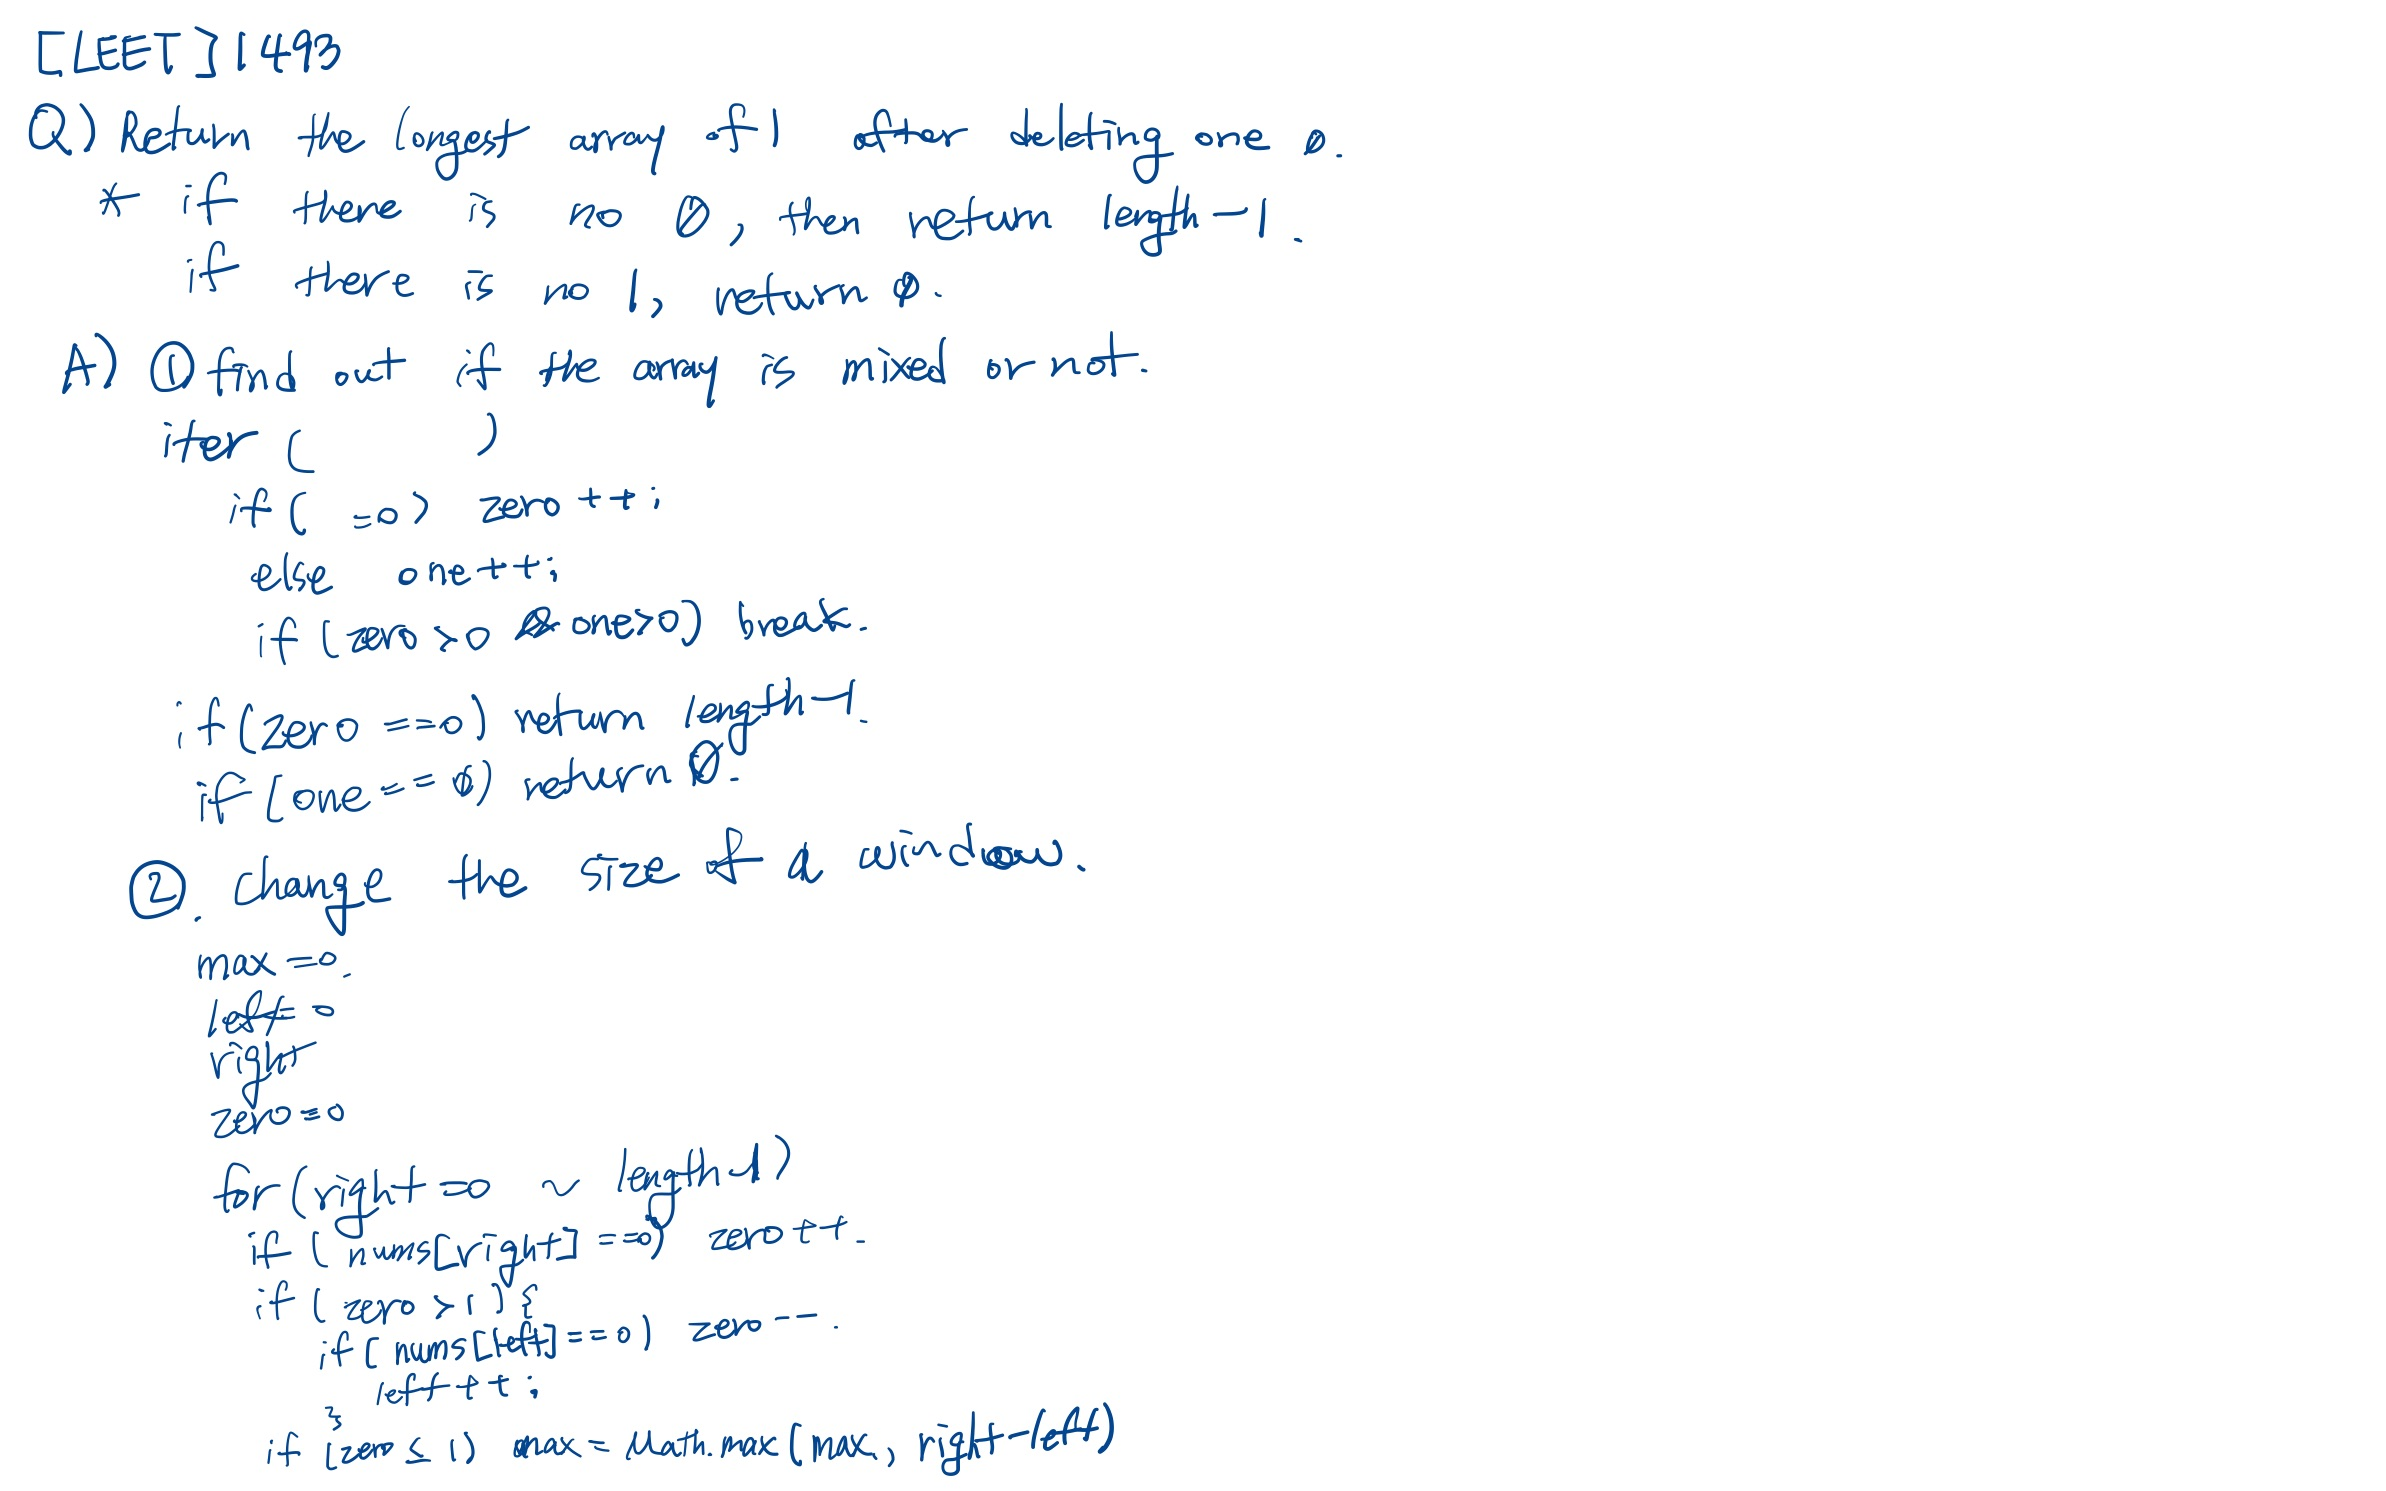 [LEET] 1493
Q) Return the longest array of 1 after deleting one 0.
* if there is no 0, then return length-1.
if there is no 1, return 0.
A) ① find out if the array is mixed or not.
iter ( )
if ( =0) zero++;
else one++;
if (zero>0 & one>0) break.
if (zero ==0) return length-1.
if (one==0) return 0.
②. change the size of a window.
max=0.
left=0
right
zero=0
for (right=0 ~ length-1)
if (nums[right] ==0) zero++.
if (zero>1) {
if (nums[left]==0) zero--.
left++;
}
if (zero ≤ 1) max = Math.max(max, right-left)